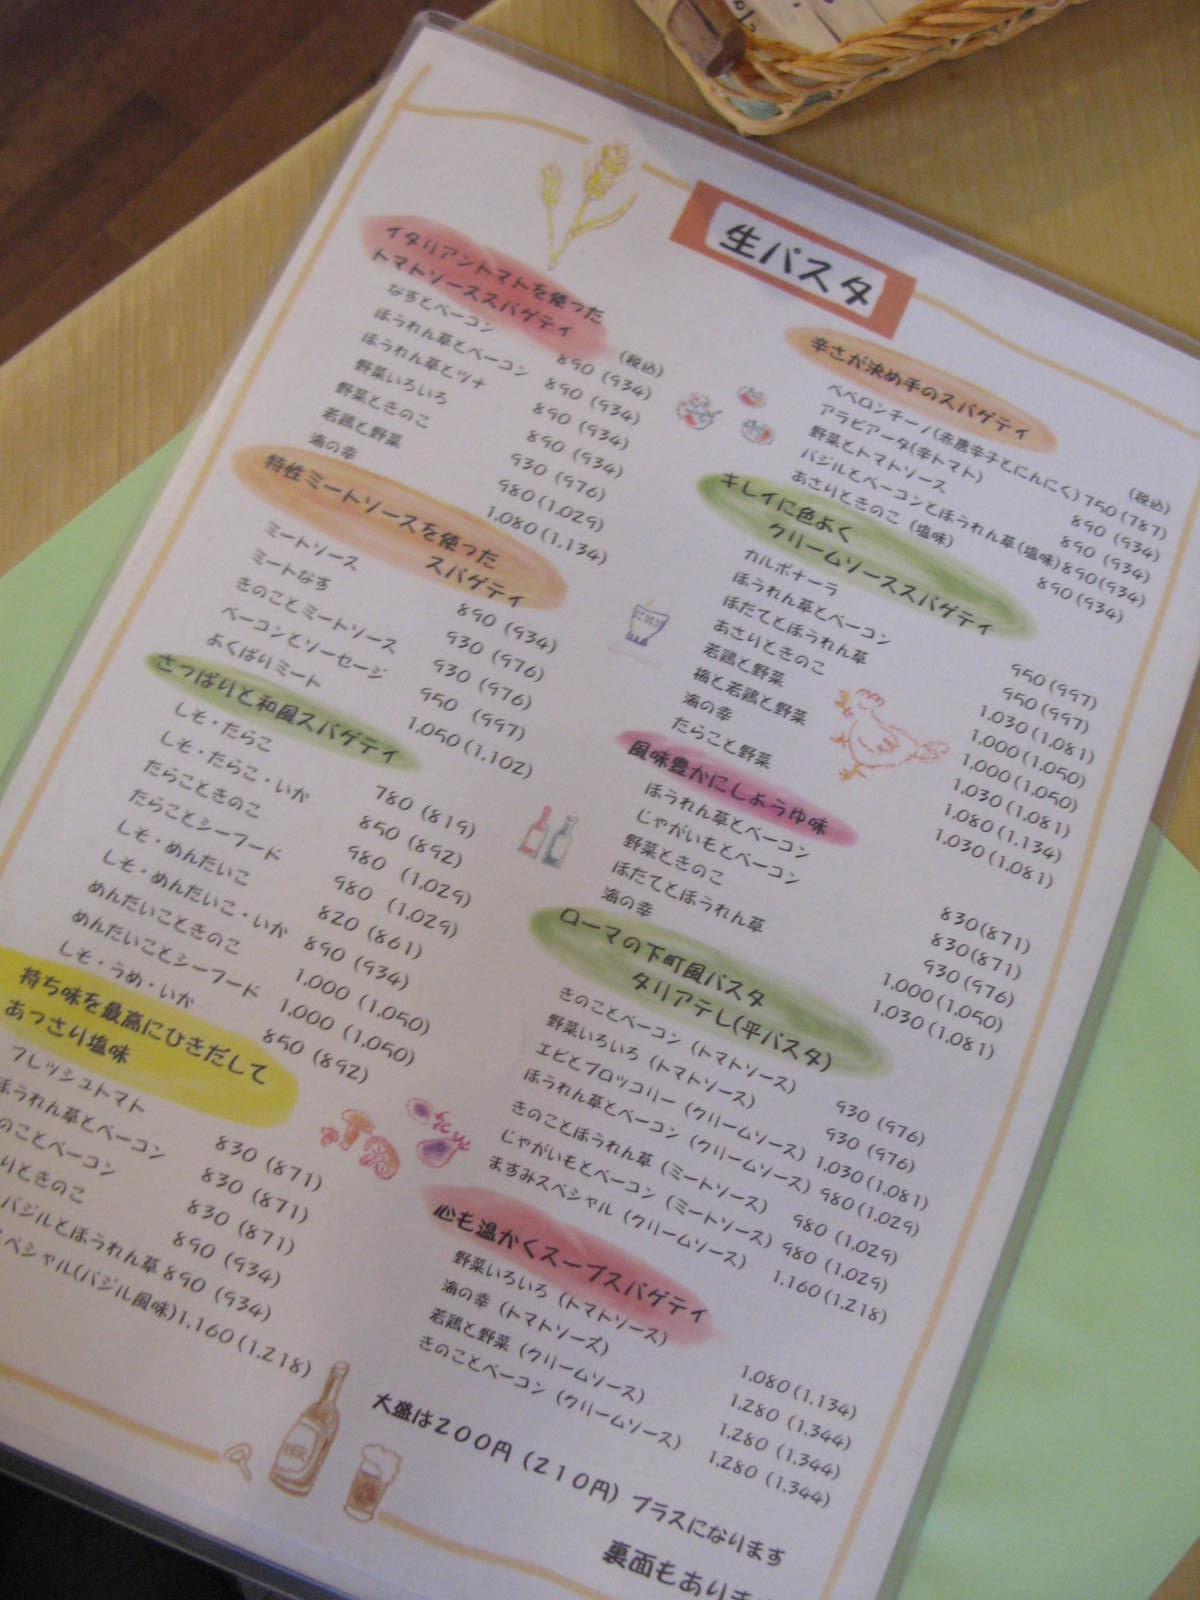 生パスタ
イタリアントマトを使った
トマトソーススパゲティ
(税込)
なすとベーコン 890 (934)
ほうれん草とベーコン 890 (934)
ほうれん草とツナ 890 (934)
野菜いろいろ 890 (934)
野菜ときのこ 930 (976)
若鶏と野菜 980 (1,029)
海の幸 1,080 (1,134)
特性ミートソースを使った
スパゲティ
ミートソース 890 (934)
ミートなす 930 (976)
きのことミートソース 930 (976)
ベーコンとソーセージ 950 (997)
よくばりミート 1,050 (1,102)
さっぱりと和風スパゲティ
しそ・たらこ 780 (819)
しそ・たらこ・いか 850 (892)
たらこときのこ 980 (1,029)
たらことシーフード 980 (1,029)
しそ・めんたいこ 820 (861)
しそ・めんたいこ・いか 890 (934)
めんたいこときのこ 1,000 (1,050)
めんたいことシーフード 1,000 (1,050)
しそ・うめ・いか 850 (892)
持ち味を最高にひきだして
あっさり塩味
フレッシュトマト 830 (871)
ほうれん草とベーコン 830 (871)
のことベーコン 830 (871)
りときのこ 890 (934)
バジルとほうれん草 890 (934)
ペシャル(バジル風味) 1,160 (1,218)
辛さが決め手のスパゲティ
(税込)
ペペロンチーノ(赤唐辛子とにんにく) 750 (787)
アラビアータ(辛トマト) 890 (934)
野菜とトマトソース 890 (934)
バジルとベーコンとほうれん草(塩味) 890 (934)
あさりときのこ (塩味) 890 (934)
キレイに色よく
クリームソーススパゲティ
カルボナーラ 950 (997)
ほうれん草とベーコン 950 (997)
ほたてとほうれん草 1,030 (1,081)
あさりときのこ 1,000 (1,050)
若鶏と野菜 1,000 (1,050)
梅と若鶏と野菜 1,030 (1,081)
海の幸 1,080 (1,134)
たらこと野菜 1,030 (1,081)
風味豊かにしょうゆ味
ほうれん草とベーコン 830 (871)
じゃがいもとベーコン 830 (871)
野菜ときのこ 930 (976)
ほたてとほうれん草 1,000 (1,050)
海の幸 1,030 (1,081)
ローマの下町風パスタ
タリアテレ(平パスタ)
きのことベーコン (トマトソース) 930 (976)
野菜いろいろ (トマトソース) 930 (976)
エビとブロッコリー (クリームソース) 1,030 (1,081)
ほうれん草とベーコン (クリームソース) 980 (1,029)
きのことほうれん草 (ミートソース) 980 (1,029)
じゃがいもとベーコン (ミートソース) 980 (1,029)
ますみスペシャル (クリームソース) 1,160 (1,218)
心も温かくスープスパゲティ
野菜いろいろ (トマトソース) 1,080 (1,134)
海の幸 (トマトソース) 1,280 (1,344)
若鶏と野菜 (クリームソース) 1,280 (1,344)
きのことベーコン (クリームソース) 1,280 (1,344)
大盛は200円 (210円) プラスになります
裏面もありま
BEER